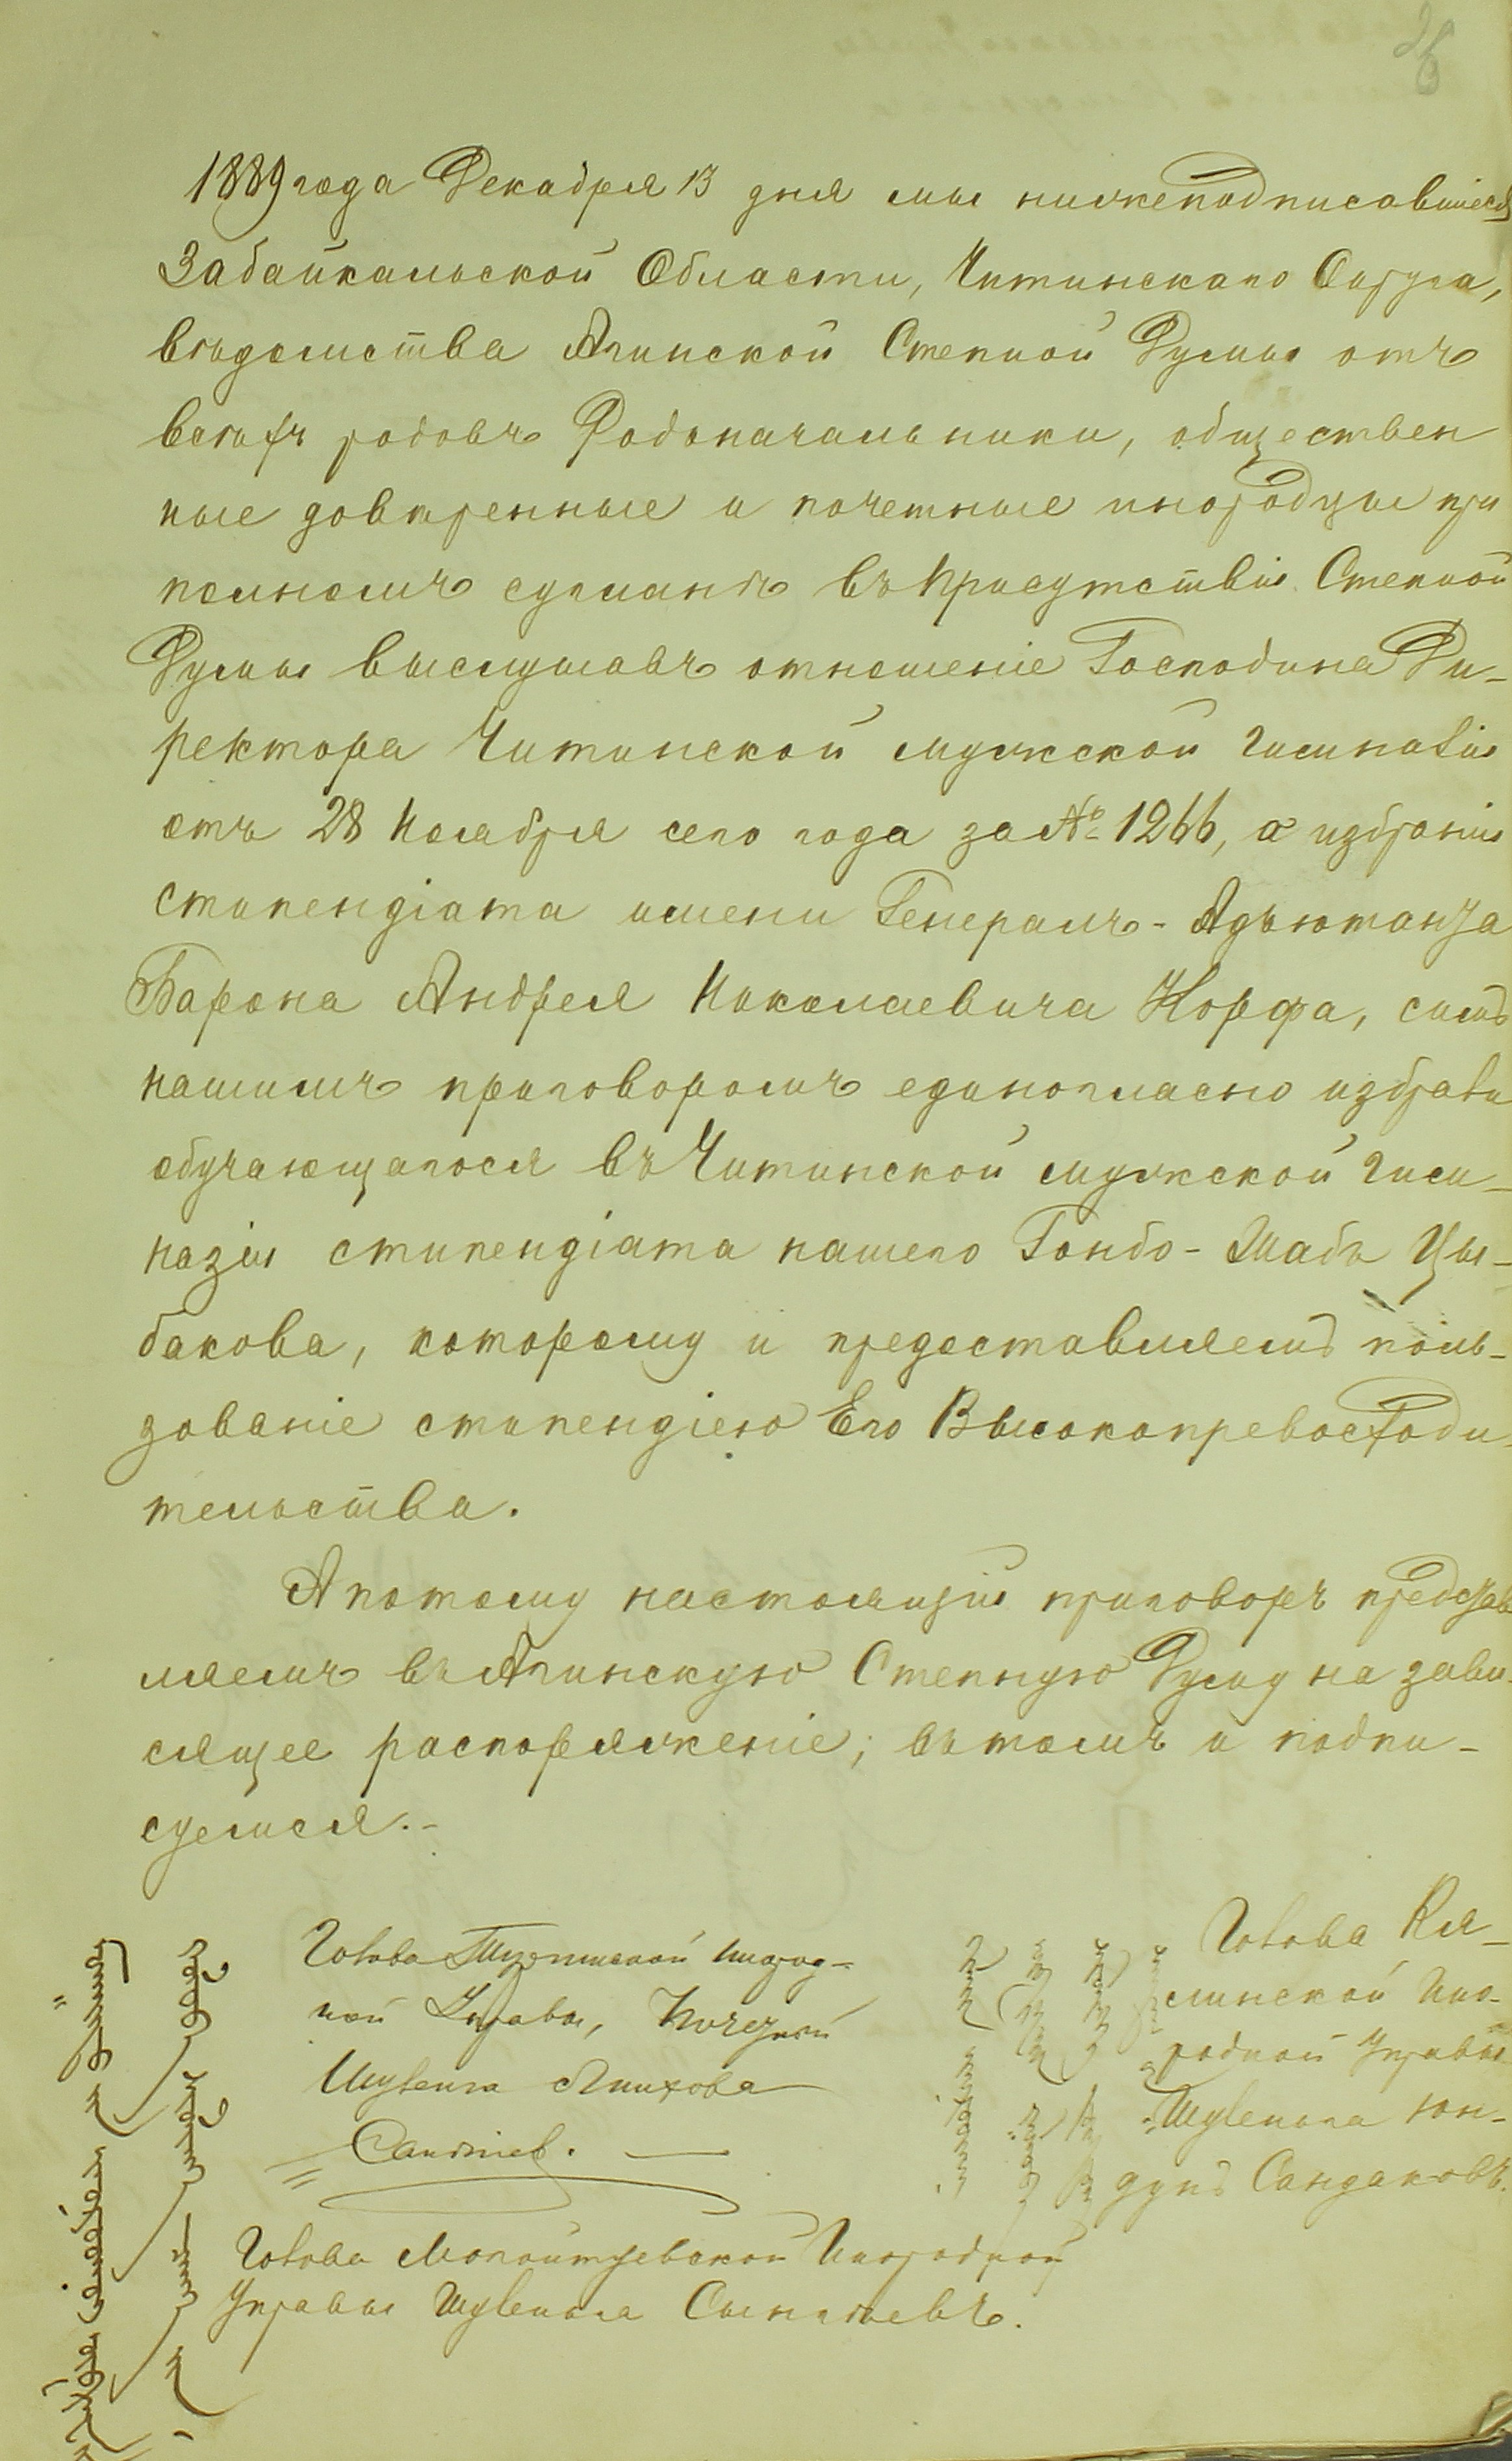 1889 года Декабря 13 дня мы нижеподписавшіеся
Забайкальской Области, Читинскаго Округа,
вѣдомства Агинской Степной Думы отъ
всѣхъ родовъ Родоначальники, обществен
ные довѣренные и почетные инородцы при
полномъ сугланѣ въ присутствіи Степной
Думы выслушавъ отношеніе Господина Ди-
ректора Читинской мужской гимназіи
отъ 28 Ноября сего года за № 1266, о избраніи
стипендіата имени Генералъ-Адъютанта
Барона Андрея Николаевича Корфа, симъ
нашимъ приговоромъ единогласно избрали
обучающагося въ Читинской мужской гим-
назіи стипендіата нашего Гонбо-Шаба Цы-
бакова, которому и предоставляемъ поль-
зованіе стипендіею Его Высокопревосходи
тельства.
А потому настоящій приговоръ представ
ляемъ въ Агинскую Степную Думу на зави-
сящее распоряженіе; въ томъ и подпи-
суемся.-
Голова Инород-
ной Управы, Почетный
Шуленга
Голова Ки-
линской Ино-
родной Управы
Шуленга Юн-
дунъ Сандаковъ.
Голова Могойтуевской Инородной
Управы Шуленга